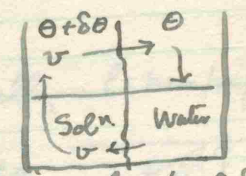 θ+δθ θ
v
Solⁿ Water
v